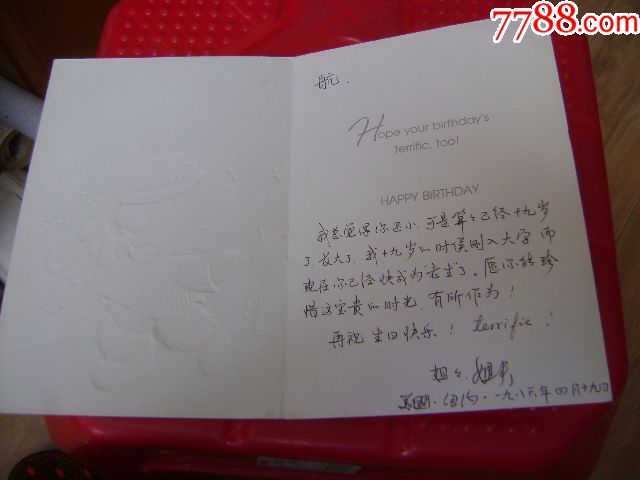 7788.com
航.
Hope your birthday's
terrific, too!
HAPPY BIRTHDAY
我总觉得你还小,可是算々已经十九岁
了,长大了,我十九岁的时候刚入大学,而
现在你已经快成为"老生"了。愿你能珍
惜这宝贵的时光,有所作为!
再祝 生日快乐! terrific!
姐々.姐夫
美国·纽约·一九八六年四月十九日